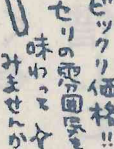 ビックリ価格!!
セリの雰囲気を
味わって
みませんか